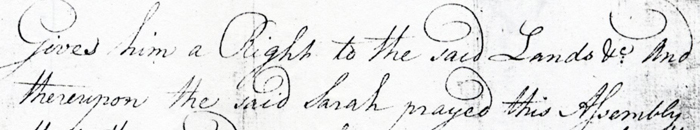 Gives him a Right to the said Lands &c. And
thereupon the said Sarah prayed this Assembly